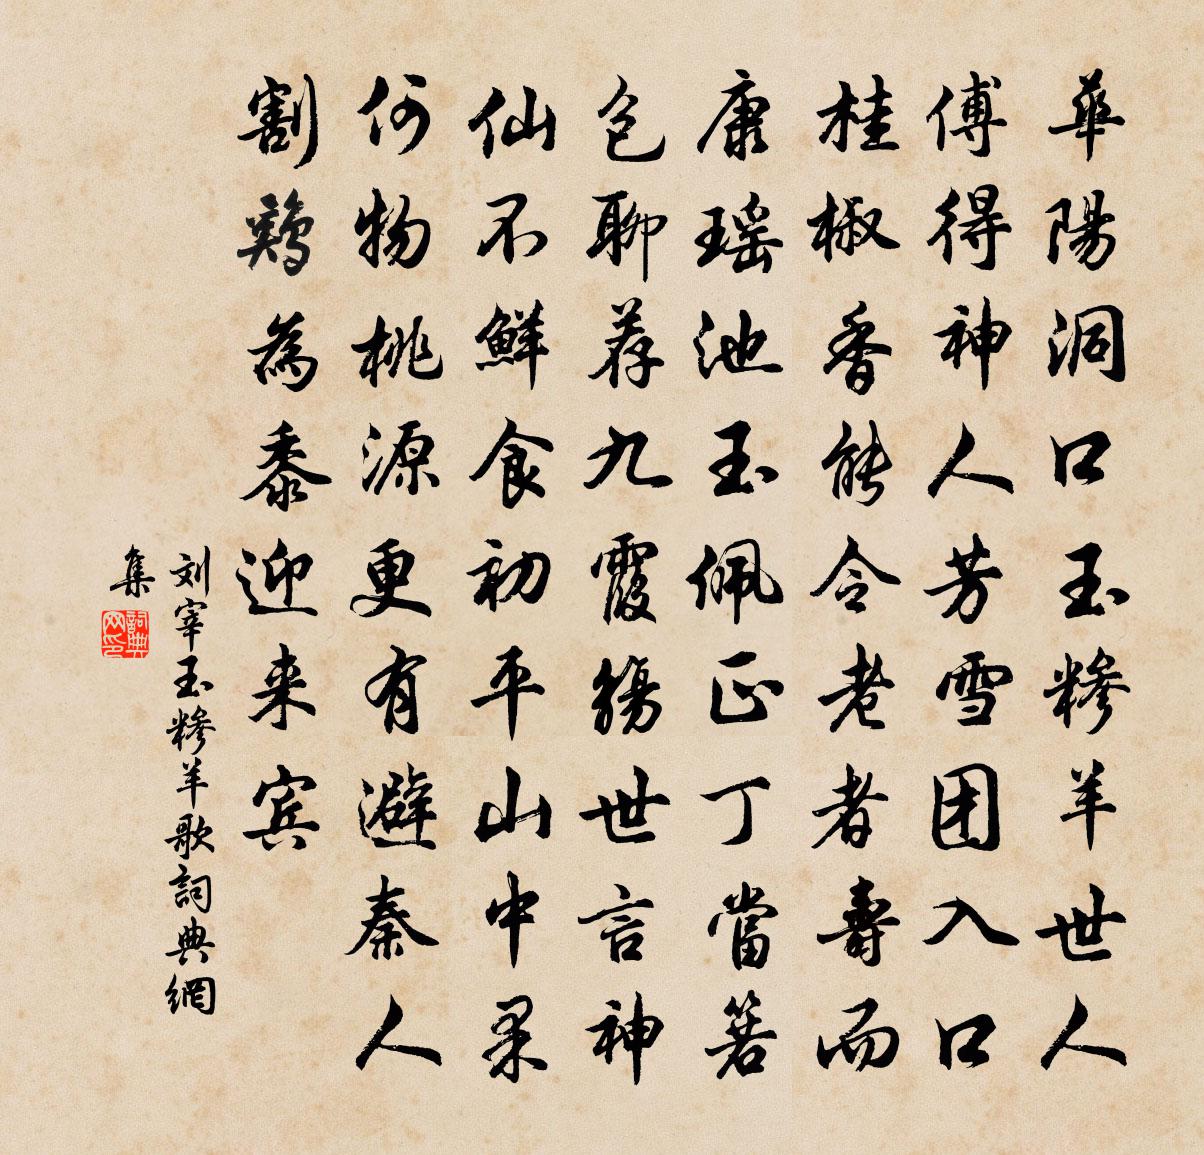 華陽洞口玉糝羊世人
傅得神人芳雪团入口
桂椒香能令老者壽而
康瑶池玉佩正丁當箬
包聊荐九霞觴世言神
仙不鮮食初平山中果
何物桃源更有避秦人
割鷄為黍迎来宾
刘宰玉糝羊歌詞典網
集
詞典网印